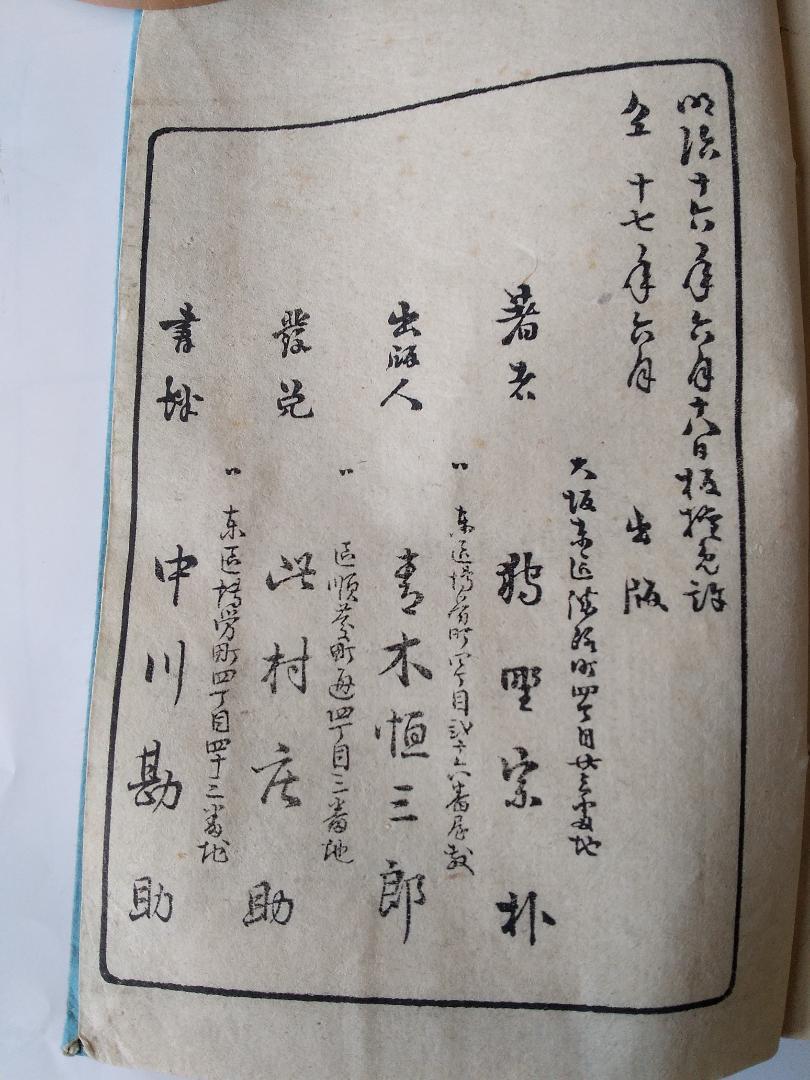 明治十六年六月十八日板権免許
仝十七年六月 出版
大坂東区淡路町四丁目廿三番地
著者 鵜野宗朴
〃 東区博労町四丁目弐十六番屋敷
出版人 青木恒三郎
〃 区順慶町通四丁目三番地
發兌 此村庄助
〃 東区博労町四丁目四十三番地
書林 中川勘助